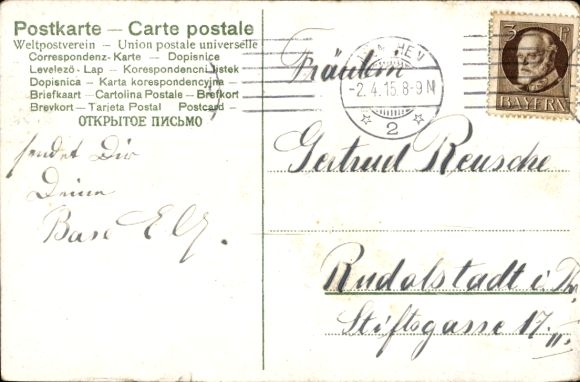 Postkarte — Carte postale
Weltpostverein — Union postale universelle
Correspondenz-Karte — Dopisnice
Levelező-Lap — Korespondencni listek
Dopisnica — Karta korespondencyjna —
Briefkaart — Cartolina Postale — Brefkort
Brevkort — Tarjeta Postal Postcard —
ОТКРЫТОЕ ПИСЬМО
sendet Dir
Deine
Base
3 P
BAYERN
MÜNCHEN
-2.4.15.8-9N
2
Fräulein
Gertrud Reusche
Rudolstadt i. Th.
Stiftsgasse 17. II.